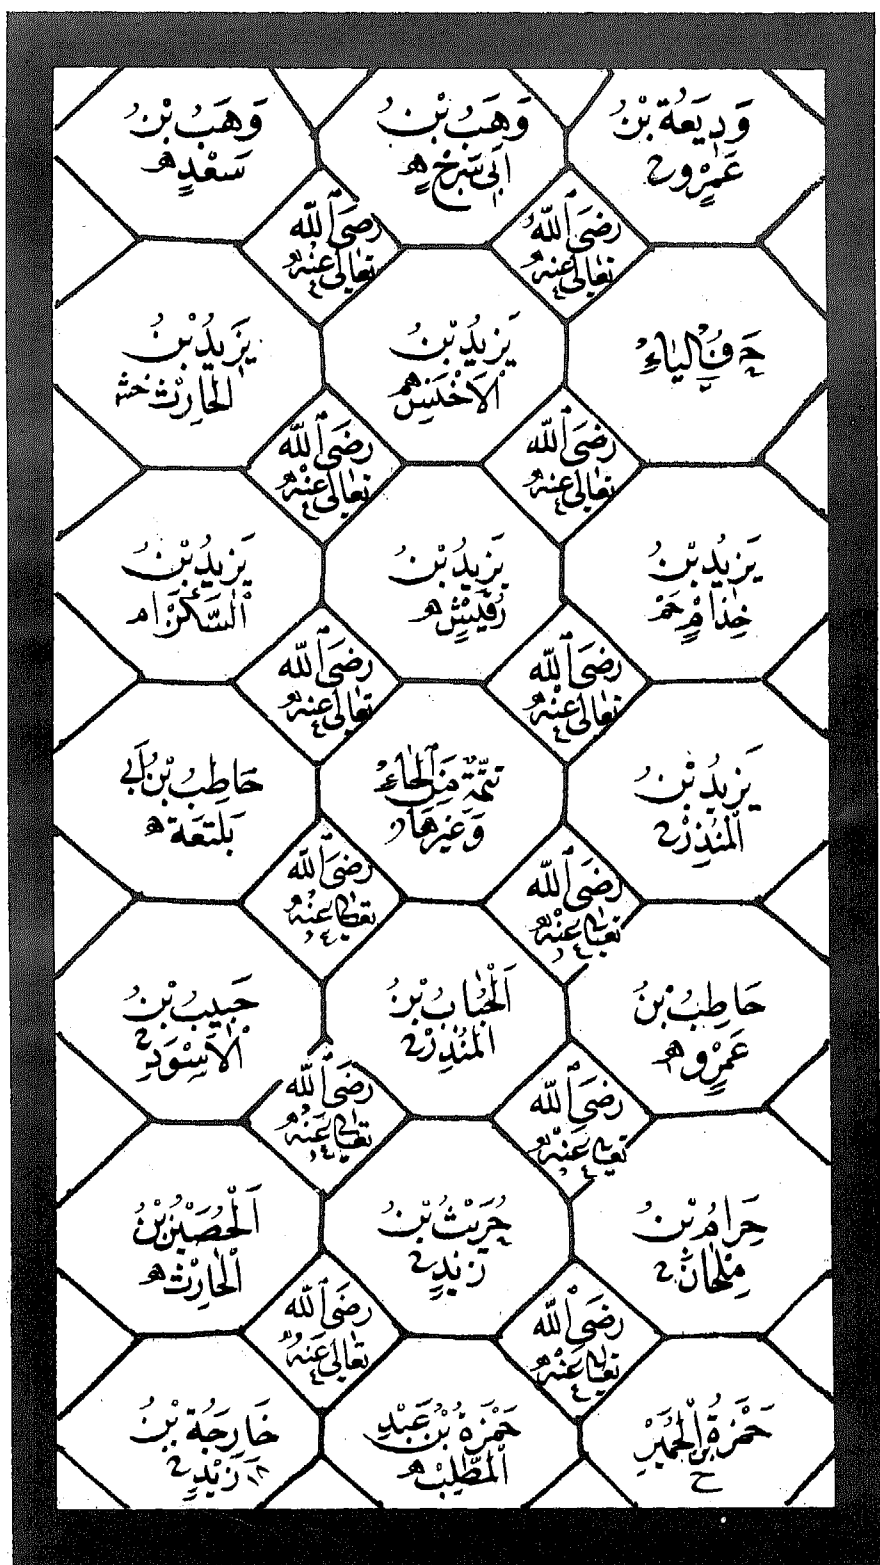 وَدِيعَةُ بْنُ
عَمْرٍو خ
وَهَبُ بْنُ
اَبِي سَرْحٍ ه
وَهَبُ بْنُ
سَعْدٍ ه
رَضِيَ اللّٰه
تَعَالٰى عَنْهُ
رَضِيَ اللّٰه
تَعَالٰى عَنْهُ
حَرْفُ اليَاءِ
يَزِيدُ بْنُ
الْاَخْنَسِ
يَزِيدُ بْنُ
الْحَارِثِ
رَضِيَ اللّٰه
تَعَالٰى عَنْهُ
رَضِيَ اللّٰه
تَعَالٰى عَنْهُ
يَزِيدُ بْنُ
خِذَامٍ
يَزِيدُ بْنُ
رُقَيْشٍ ه
يَزِيدُ بْنُ
السَّكَنِ
رَضِيَ اللّٰه
تَعَالٰى عَنْهُ
رَضِيَ اللّٰه
تَعَالٰى عَنْهُ
يَزِيدُ بْنُ
الْمُنْذِرِ خ
تَتِمَّةٌ مِنَ الْحَاءِ
وَغَيْرِهَا
حَاطِبُ بْنُ اَبِي
بَلْتَعَةَ ه
رَضِيَ اللّٰه
تَعَالٰى عَنْهُ
رَضِيَ اللّٰه
تَعَالٰى عَنْهُ
حَاطِبُ بْنُ
عَمْرٍو ه
اَلْحُبَابُ بْنُ
الْمُنْذِرِ خ
حَبِيبُ بْنُ
الْاَسْوَدِ خ
رَضِيَ اللّٰه
تَعَالٰى عَنْهُ
رَضِيَ اللّٰه
تَعَالٰى عَنْهُ
حِرَامُ بْنُ
مِلْحَانَ خ
حُرَيْثُ بْنُ
زَيْدٍ خ
اَلْحُصَيْنُ بْنُ
الْحَارِثِ ه
رَضِيَ اللّٰه
تَعَالٰى عَنْهُ
رَضِيَ اللّٰه
تَعَالٰى عَنْهُ
حَمْزَةُ بْنُ الْحُمَيِّرِ
خ
حَمْزَةُ بْنُ عَبْدِ
الْمُطَّلِبِ ه
خَارِجَةُ بْنُ
زَيْدٍ خ
١٨